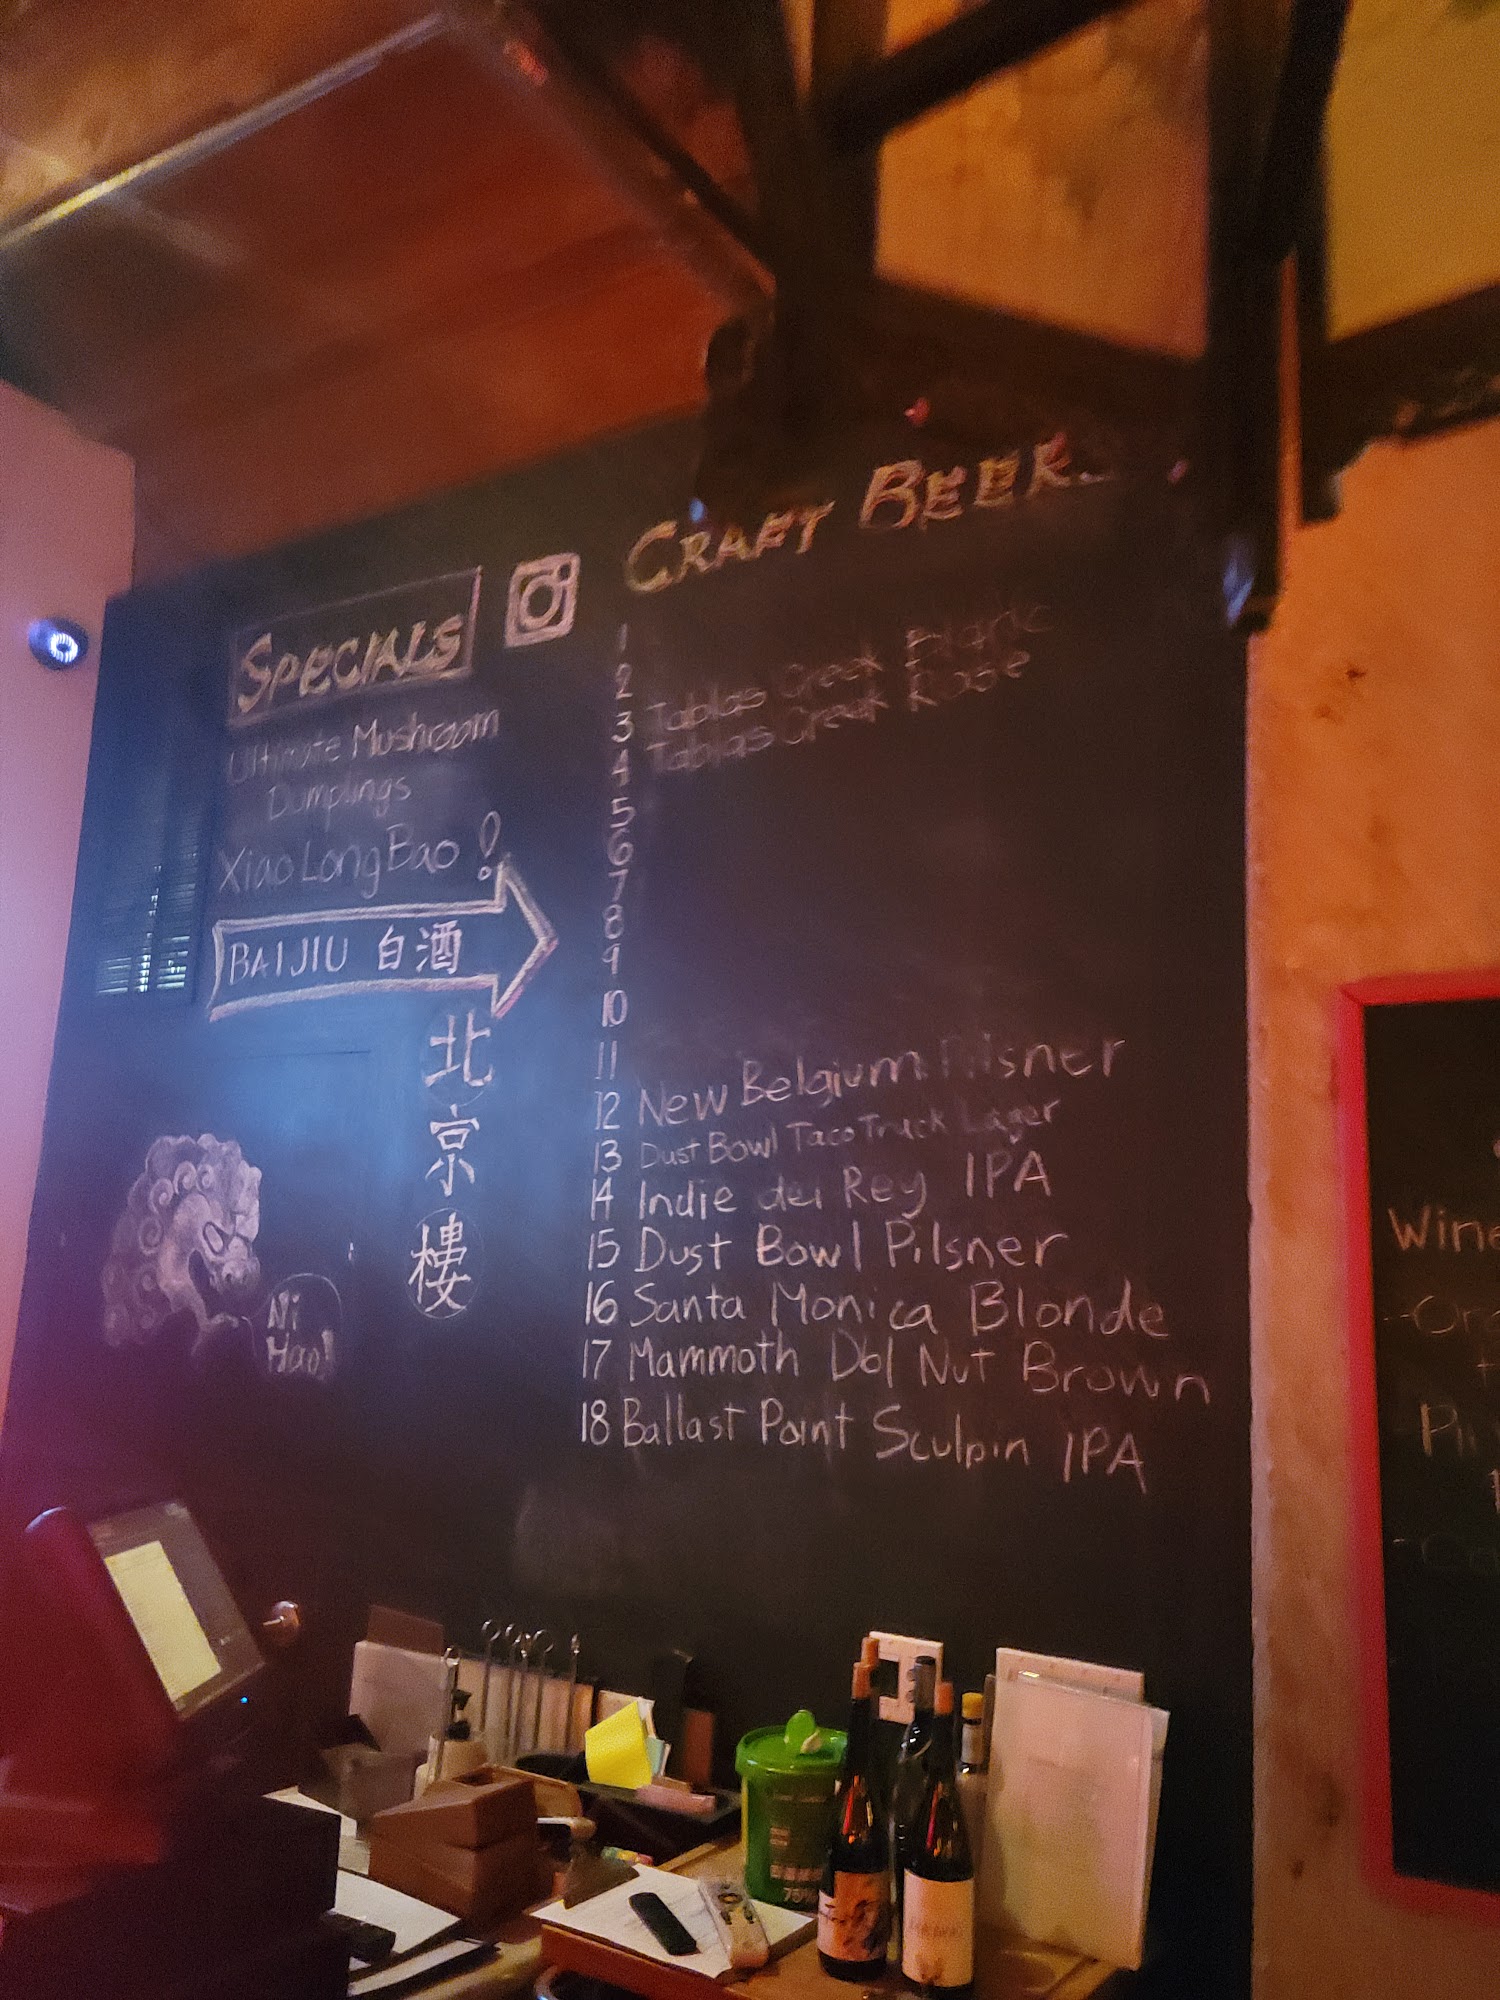 SPECIALS
Ultimate Mushroom
Dumplings
Xiao Long Bao!
BAIJIU 白酒
北
京
樓
Ni
Hao!
CRAFT BEERS
1
2
3 Tablas Creek Blanc
4 Tablas Creek Rose
5
6
7
8
9
10
11
12 New Belgium Pilsner
13 Dust Bowl Taco Truck Lager
14 Indie del Rey IPA
15 Dust Bowl Pilsner
16 Santa Monica Blonde
17 Mammoth Dbl Nut Brown
18 Ballast Point Sculpin IPA
Wine
75%